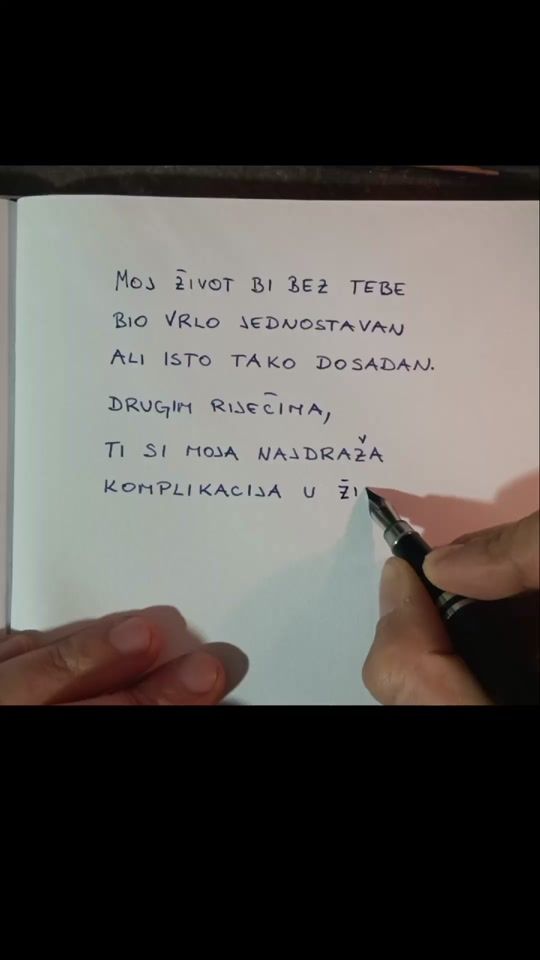 MOJ ŽIVOT BI BEZ TEBE
BIO VRLO JEDNOSTAVAN
ALI ISTO TAKO DOSADAN.
DRUGIM RIJEČIMA,
TI SI MOJA NAJDRAŽA
KOMPLIKACIJA U ŽI